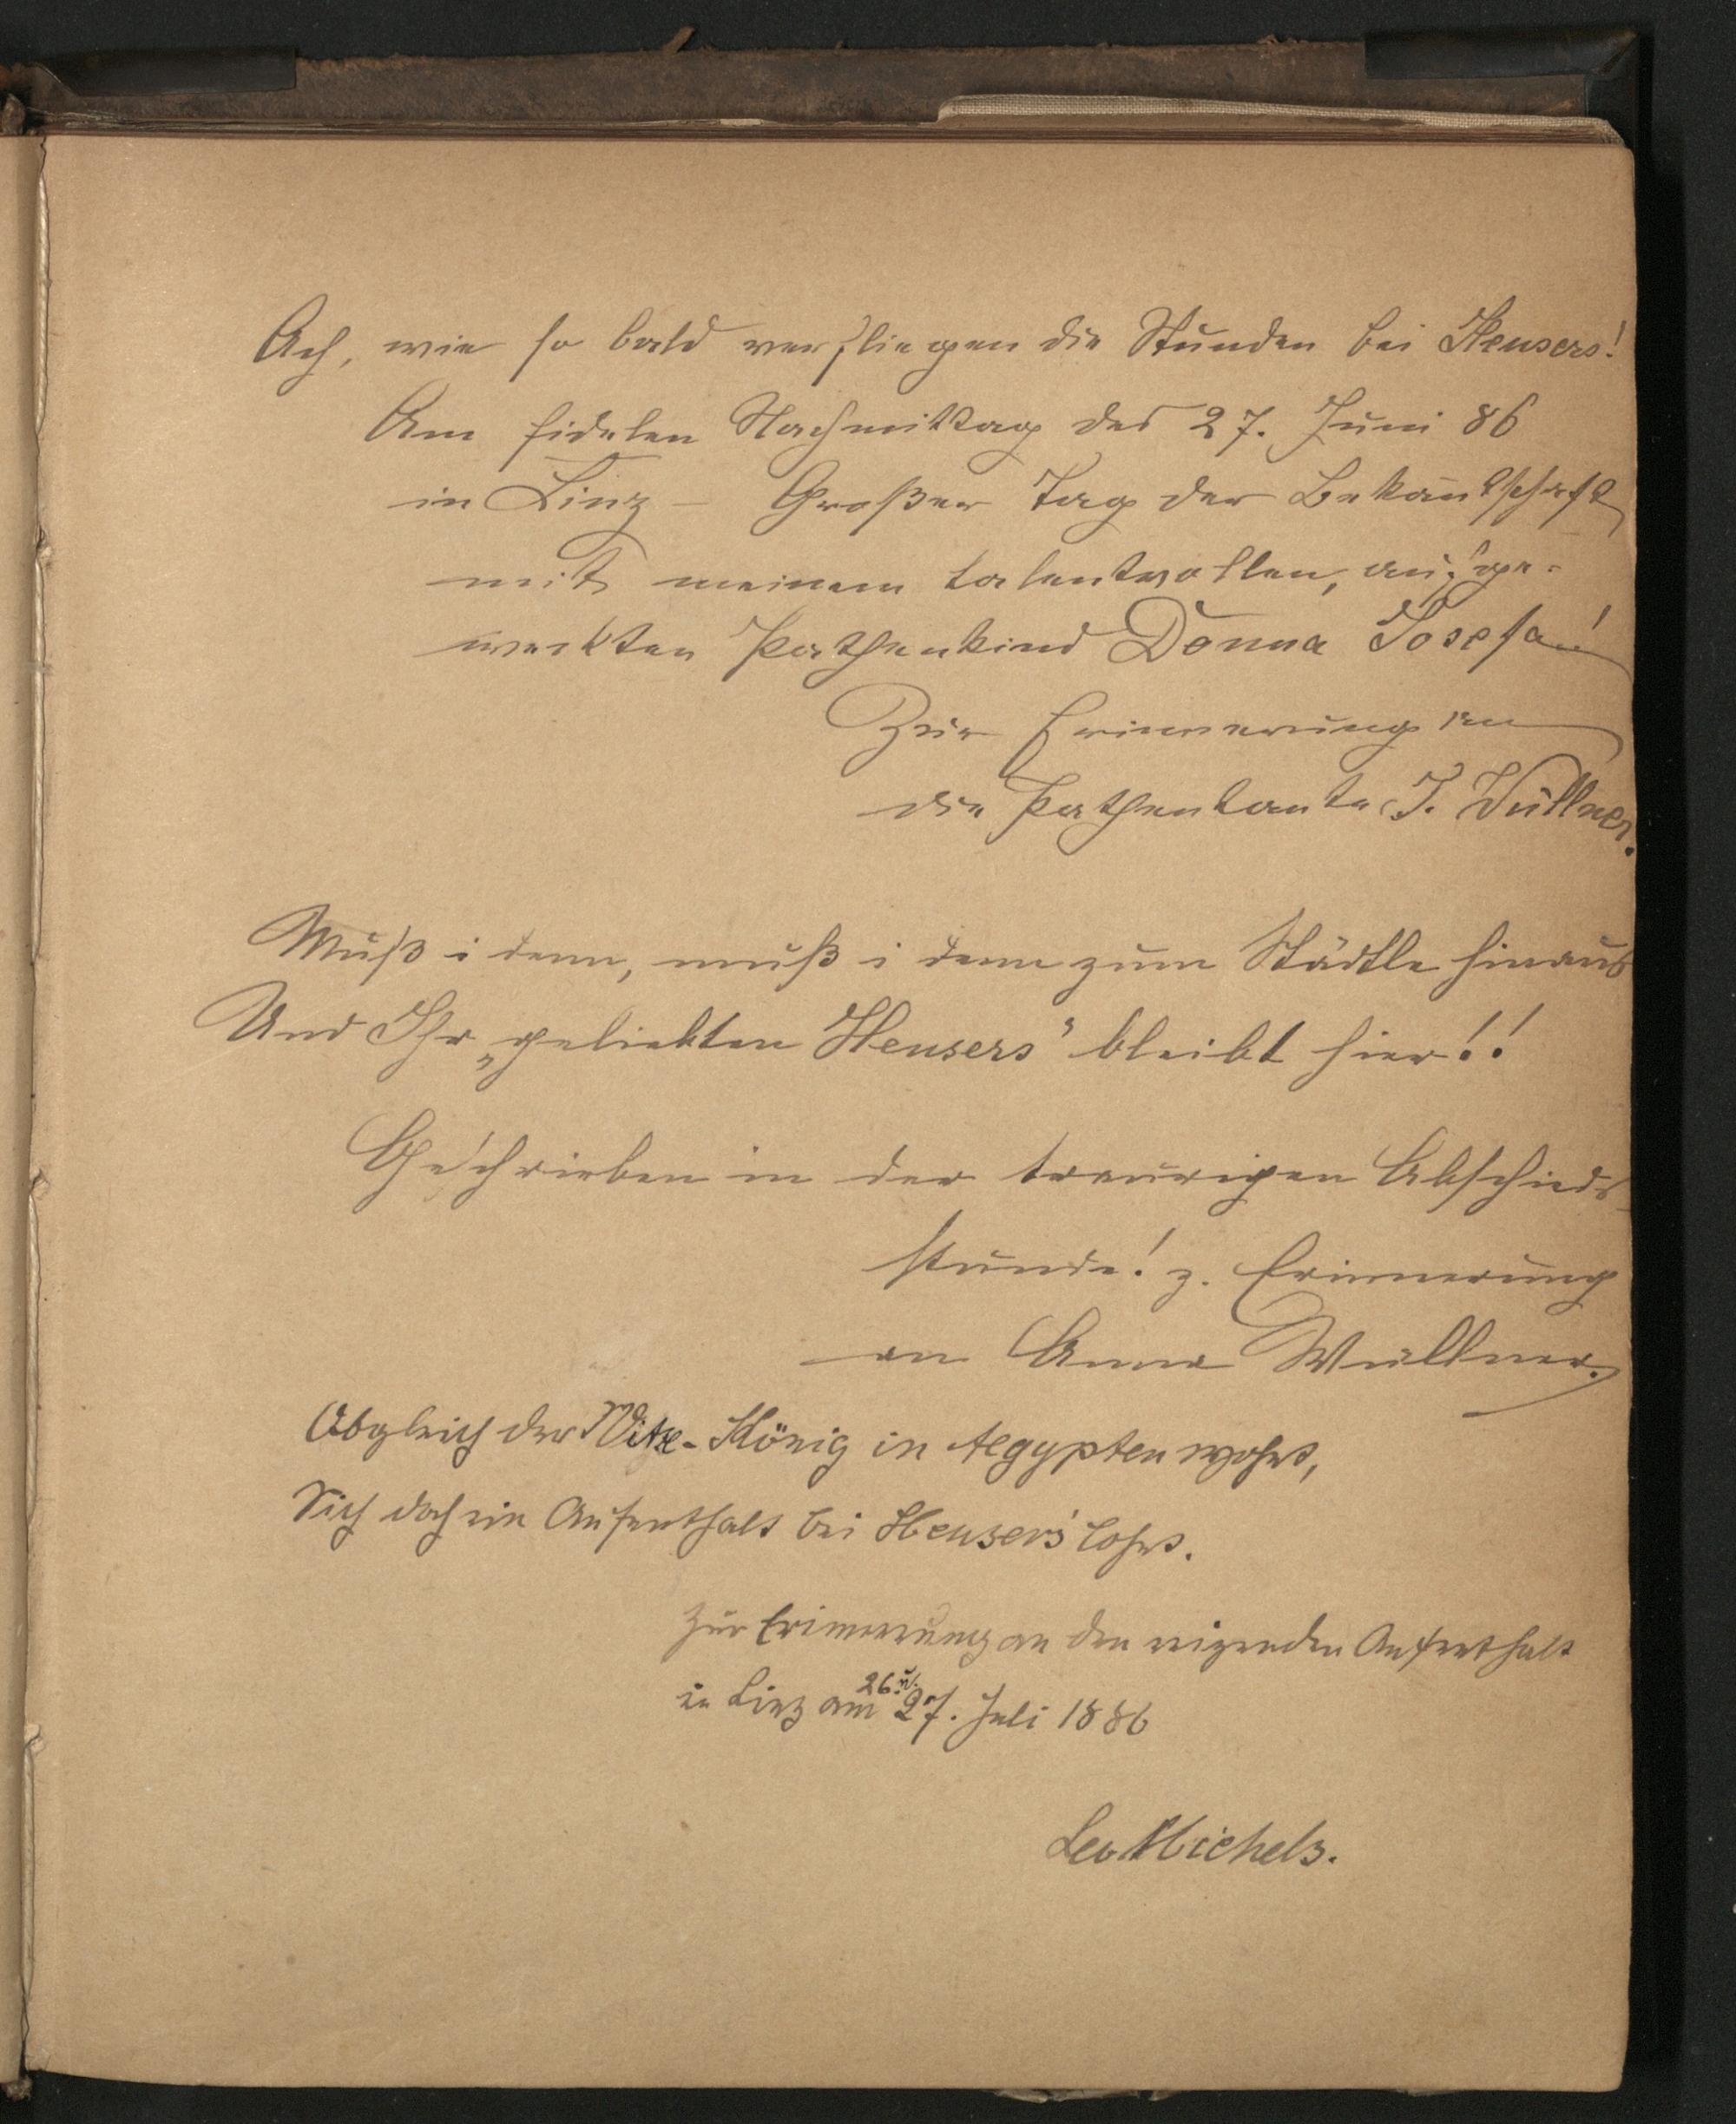 Ach, wie so bald verfliegen die Stunden bei Heusers!
Am fidelen Nachmittag des 27. Juni 86
in Linz – Großer Tag der Bekan̄tschaft
mit meinem talentvollen, aufge-
weckten Pathenkind Donna Josefa!
Zur Erinnerung an
die Pathentante J. Wüllner.
Muß i denn, muß i denn zum Städtle hinaus
Und Ihr „geliebten Heusers" bleibt hier!!
Geschrieben in der traurigen Abschieds-
stunde! z. Erinnerung
an Anna Wüllner.
Obgleich der Witze-König in Aegypten wohnt,
Sich doch ein Aufenthalt bei Heuser's lohnt.
Zur Erinnerung an den reizenden Aufenthalt
in Linz am 26. u. 27. Juli 1886
Leo Michels.